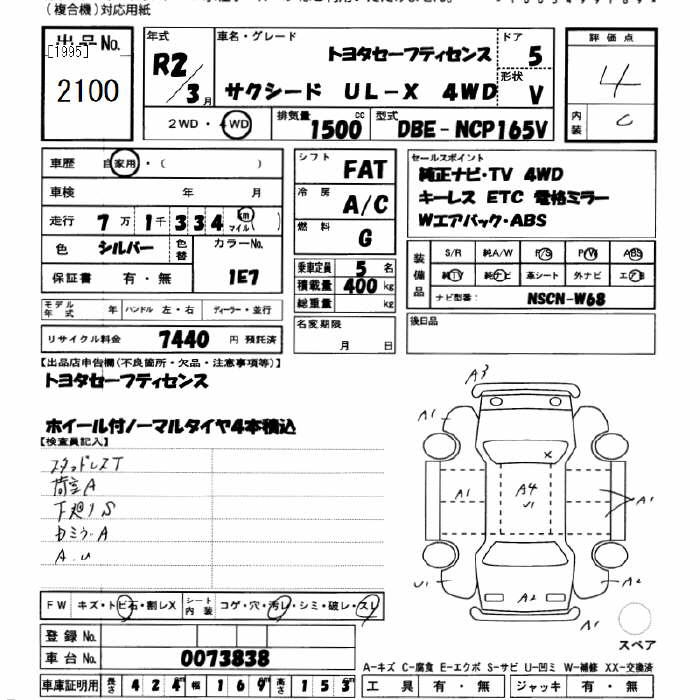 (複合機)対応用紙
出品No.
[1995]
2100
年式
R2/3月
車名・グレード
トヨタセーフティセンス
サクシード UL-X 4WD
ドア
5
形状
V
2WD・4WD
排気量
1500cc
型式
DBE-NCP165V
評価点
4
内装
C
車歴 自家用・( )
車検 年 月
走行 7万1千334 km マイル( )
色 シルバー 色替 カラーNo.
保証書 有・無 1E7
モデル年式 年 ハンドル 左・右 ディーラー・並行
リサイクル料金 7440 円 預託済
シフト FAT
冷房 A/C
燃料 G
乗車定員 5 名
積載量 400 kg
総重量 kg
名変期限
月 日
セールスポイント
純正ナビ・TV 4WD
キーレス ETC 電格ミラー
Wエアバック・ABS
装備品
S/R 純A/W P/S P/W ABS
純TV 純ナビ 革シート 外ナビ エアB
ナビ型番: NSCN-W68
後日品
【出品店申告欄(不良箇所・欠品・注意事項等)】
トヨタセーフティセンス
ホイール付ノーマルタイヤ4本積込
【検査員記入】
スタッドレスT
荷室A
下廻りS
カミラーA
A.U
FW キズ・トビ石・割レX シート内装 コゲ・穴・汚レ・シミ・破レ・スレ
登録No.
車台No. 0073838
車庫証明用 長さ 424cm 幅 169cm 高さ 153cm
A3
A1
A1
A4
U1
A1
U1
A2
A2
A1
スペア
A-キズ C-腐食 E-エクボ S-サビ U-凹ミ W-補修 XX-交換済
工具 有・無 ジャッキ 有・無